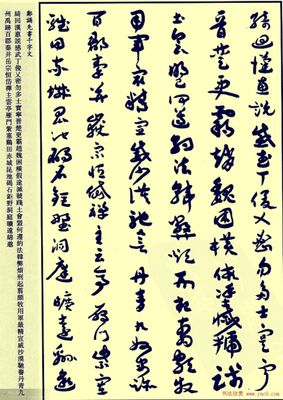 綺迴漢惠說感武丁俊乂密勿多士寔寧
晉楚更霸趙魏困橫假途滅虢踐
土會盟何遵約法韓弊煩刑起翦頗牧
用軍最精宣威沙漠馳譽丹青九州禹跡
百郡秦并嶽宗恒岱禪主云亭雁門紫塞
雞田赤城昆池碣石鉅野洞庭曠遠綿邈
鄭誦先書千字文
綺回漢惠說感武丁俊乂密勿多士寔寧晉楚更霸趙魏困橫假途滅虢踐土會盟何遵約法韓弊煩刑起翦頗牧用軍最精宣威沙漠馳譽丹青九
州禹跡百郡秦并岳宗恒岱禪主雲亭雁門紫塞雞田赤城昆池碣石鉅野洞庭曠遠綿邈
书法欣赏 www.yac8.com